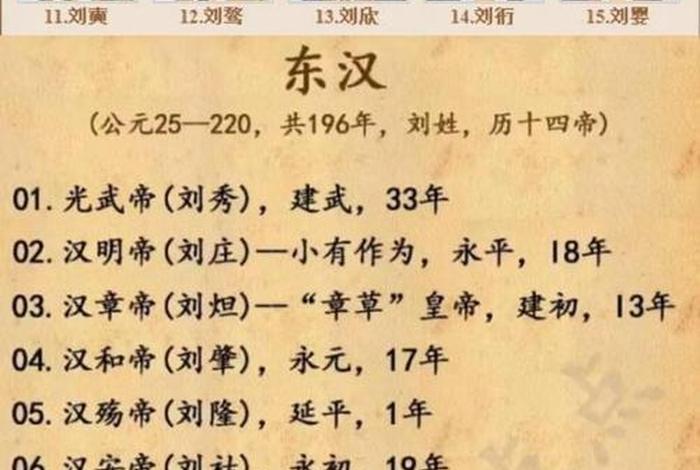 11.刘奭 12.刘骜 13.刘欣 14.刘衎 15.刘婴
东汉
(公元25—220，共196年，刘姓，历十四帝)
01.光武帝(刘秀)，建武，33年
02.汉明帝(刘庄)—小有作为，永平，18年
03.汉章帝(刘炟)—“章草”皇帝，建初，13年
04.汉和帝(刘肇)，永元，17年
05.汉殇帝(刘隆)，延平，1年
06.汉安帝(刘祜)，永初，19年